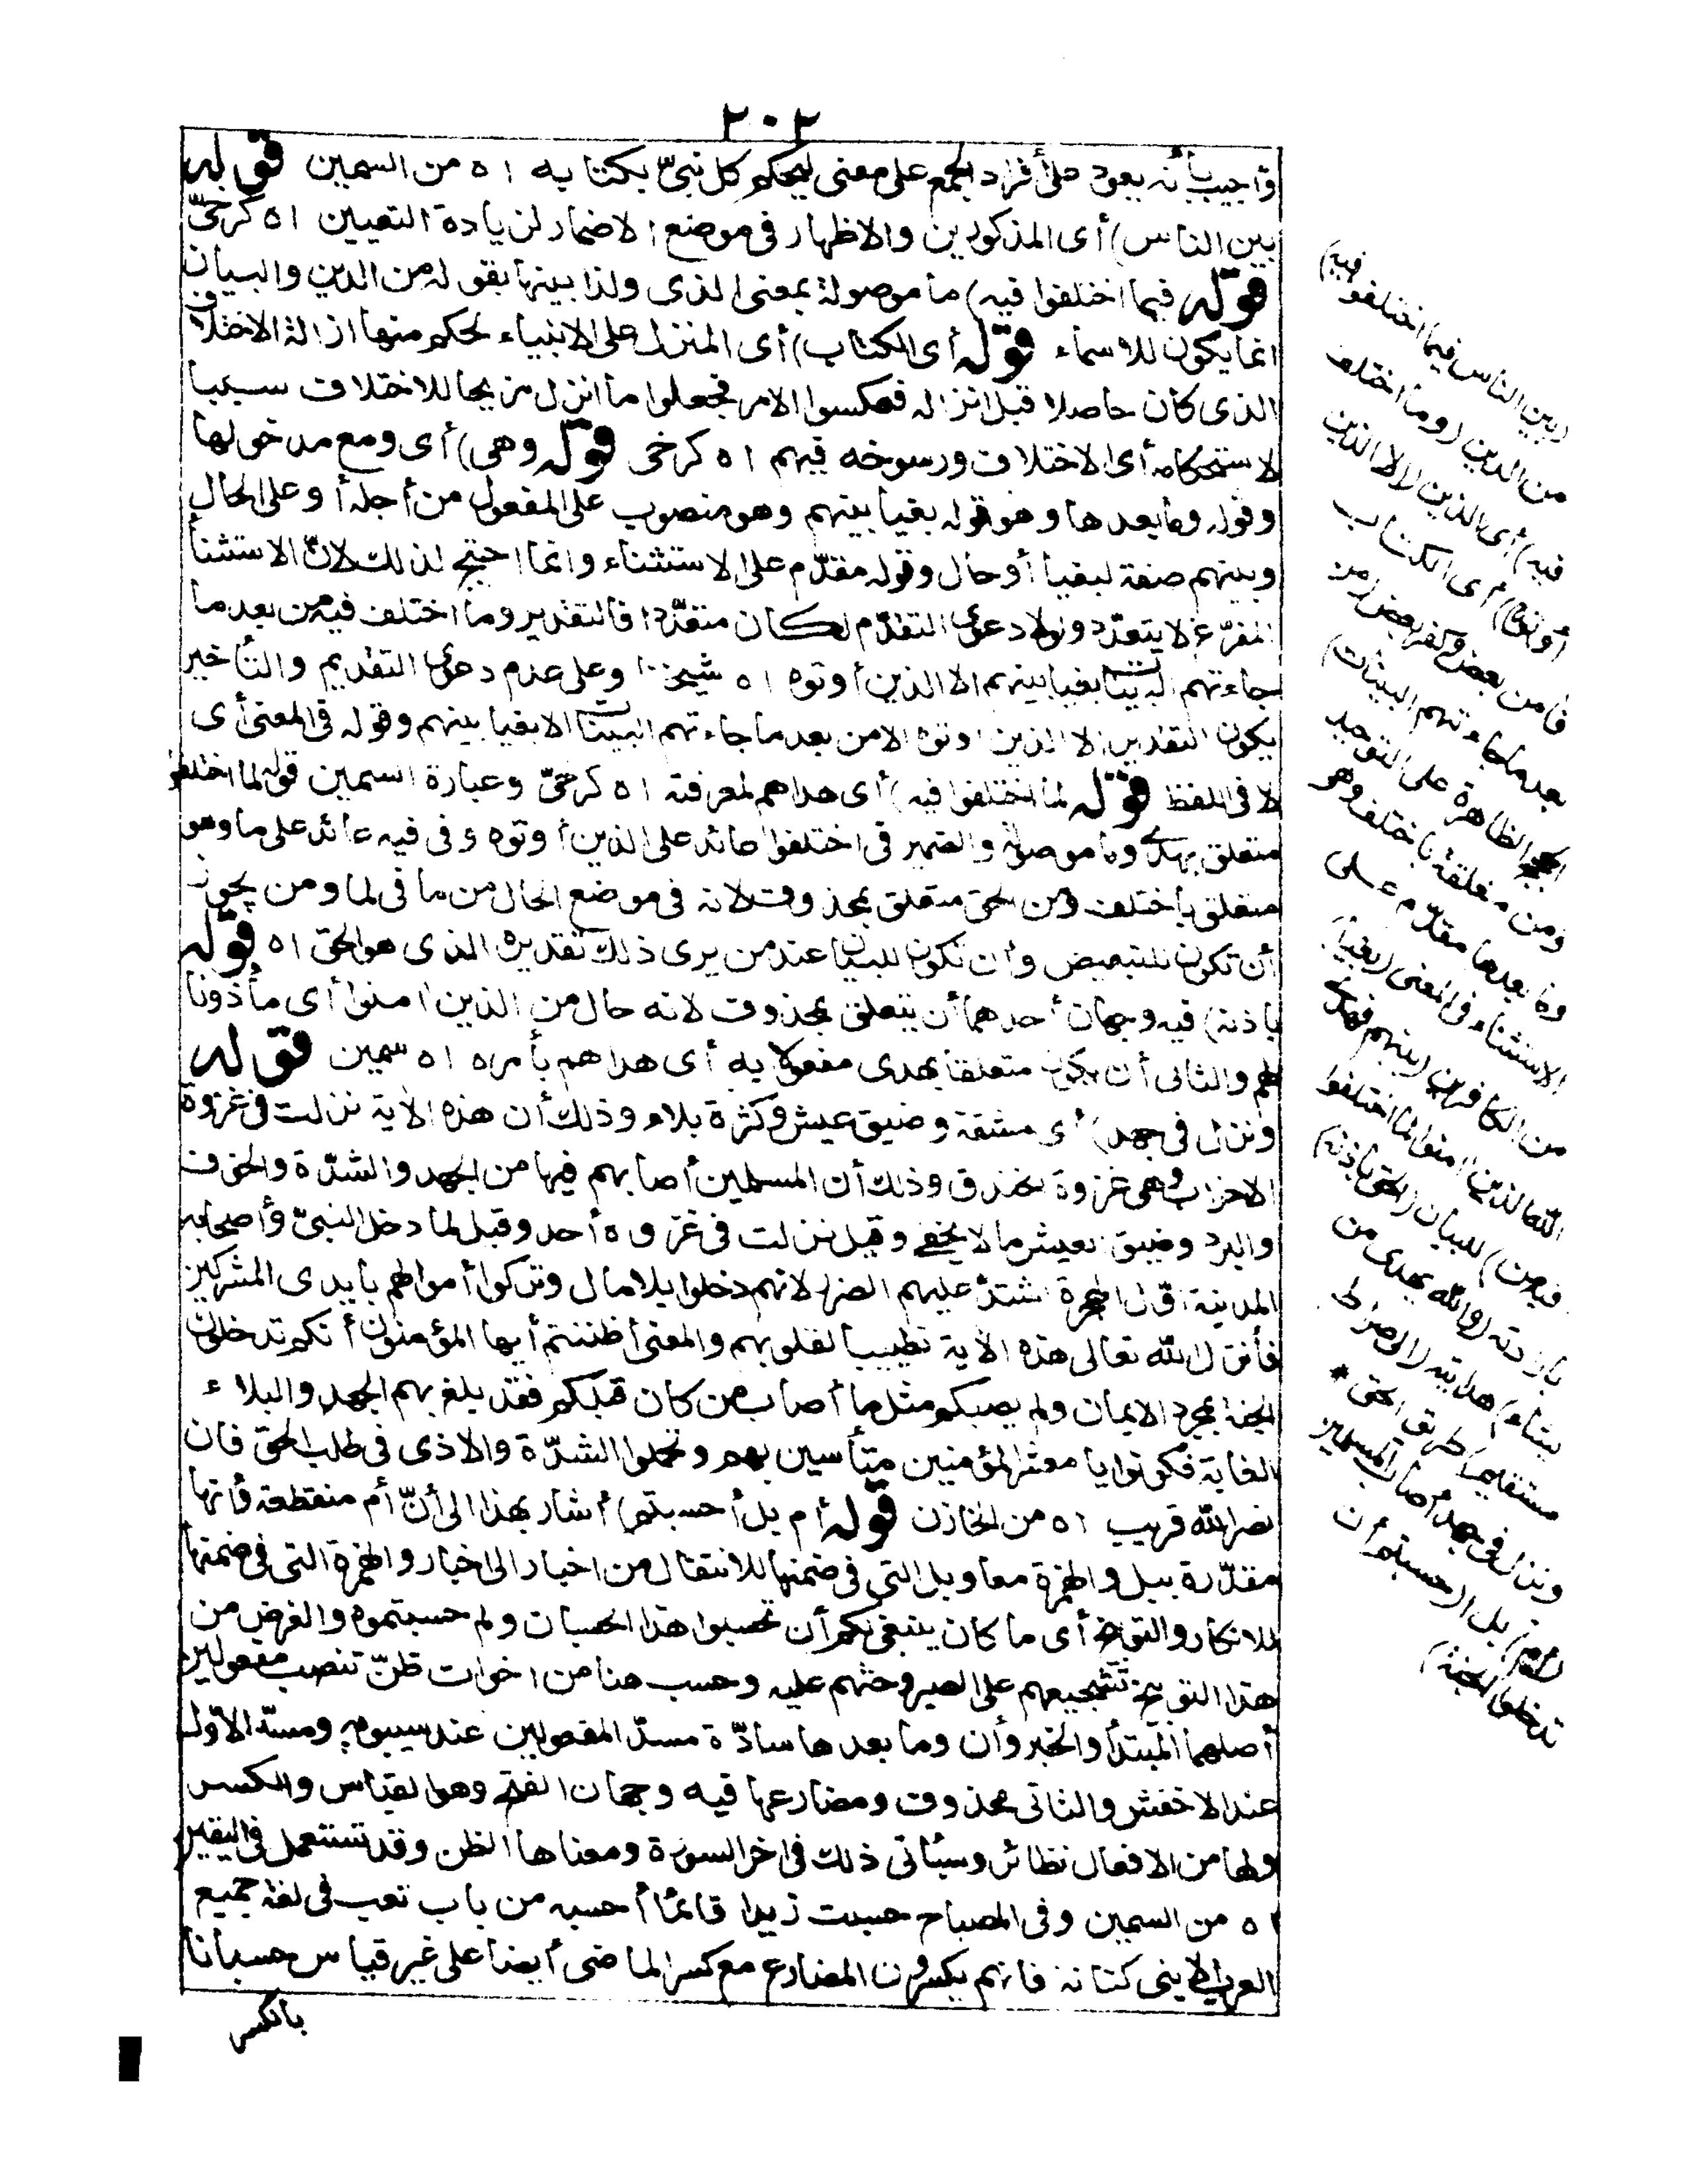 ٢٠٢
وأجيب بأنه يعود على أفراد الجمع على معنى ليحكم كل نبىّ بكتابه اه من السمين قوله
بين الناس) أى المذكورين والاظهار فى موضع الاضمار لزيادة التعيين اه كرخىّ
قوله فيما اختلفوا فيه) ما موصولة بمعنى الذى ولذا بينها بقوله من الدين والبيان
انما يكون للاسماء قوله أى الكتاب) أى المنزل على الانبياء لحكم منها ازالة الاختلاف
الذى كان حاصلا قبل انزاله فعكسوا الامر فجعلوا ما أنزل مزيحا للاختلاف سببا
لاستحكامه أى الاختلاف ورسوخه فيهم اه كرخى قوله وهى) أى ومع مدخولها
وقوله وما بعدها وهو قوله بغيا بينهم وهو منصوب على المفعول من أجله أو على الحال
وبينهم صفة لبغيا أو حال وقوله مقدّم على الاستثناء وانما احتيج لذلك لانّ الاستثنأ
المفرّغ لا يتعدّد ولولا دعوى التقدّم لكان متعدّدا فالتقدير وما اختلف فيه من بعد ما
جاءتهم البينات بغيا بينهم الا الذين أوتوه اه شيخنا وعلى عدم دعوى التقديم والتأخير
يكون التقدير الا الذين أوتوه الا من بعد ما جاءتهم البينات الا بغيا بينهم وقوله فى المعنى أى
لا فى اللفظ قوله لما اختلفوا فيه) أى هداهم لمعرفته اه كرخىّ وعبارة السمين قوله لما اختلفوا
متعلق بهدى وما موصولة والضمير فى اختلفوا عائد على الذين أوتوه وفى فيه عائد على ما وهو
متعلق باختلف ومن الحق متعلق بمحذوف لانه فى موضع الحال من ما فى لما ومن يجوز
أن تكون للتبعيض وأن تكون للبيان عند من يرى ذلك تقديره الذى هو الحق اه قوله
باذنه) فيه وجهان أحدهما أن يتعلق بمحذوف لانه حال من الذين امنوا أى مأذونا
لهم والثانى أن يكون متعلقا بهدى مفعولا به أى هداهم بأمره اه سمين قوله
ونزل فى جهد) أى مشقة وضيق عيش وكثرة بلاء وذلك أن هذه الاية نزلت فى غزوة
الاحزاب وهى غزوة الخندق وذلك أن المسلمين أصابهم فيها من الجهد والشدّة والخوف
والبرد وضيق العيش ما لا يخفى وقيل نزلت فى غزوة أحد وقيل لما دخل النبىّ وأصحابه
المدينة أوّل الهجرة اشتدّ عليهم الضرر لانهم دخلوا بلا مال وتركوا أموالهم بأيدى المشركين
فأنزل الله تعالى هذه الاية تطييبا لقلوبهم والمعنى أظننتم أيها المؤمنون أنكم تدخلون
الجنة بمجرد الايمان ولم يصبكم مثل ما أصاب من كان قبلكم فقد بلغ بهم الجهد والبلاء
الغاية فكونوا يا معشر المؤمنين متأسين بهم وتحملوا الشدّة والاذى فى طلب الحق فان
نصر الله قريب اه من الخازن قوله أم بل أحسبتم) أشار بهذا الى أنّ أم منقطعة فانها
مقدّرة ببل والهمزة معا وبل التى فى ضمنها للانتقال من اخبار الى اخبار والهمزة التى فى ضمنها
للانكار والتوبيخ أى ما كان ينبغى لكم أن تحسبوا هذا الحسبان ولم حسبتموه والغرض من
هذا التوبيخ تشجيعهم على الصبر وحثهم عليه وحسب هنا من اخوات ظنّ تنصب مفعولين
أصلهما المبتدأ والخبر وأن وما بعدها سادّة مسدّ المفعولين عند سيبويه ومسدّ الاوّل
عند الاخفش والثانى محذوف ومضارعها فيه وجهان الفتح وهو القياس والكسر
ولها من الافعال نظائر وسيأتى ذلك فى اخر السورة ومعناها الظن وقد تستعمل فى اليقين
اه من السمين وفى المصباح حسبت زيدا قائما أحسبه من باب تعب فى لغة جميع
العرب الا بنى كنانة فانهم يكسرون المضارع مع كسر الماضى أيضا على غير قياس حسبانا
بالكسر
(بين الناس فيما اختلفوا فيه)
من الدين (وما اختلف
فيه) أى الدين (الا الذين
أوتوه) أى الكتاب
فامن بعض وكفر بعض (من
بعد ما جاءتهم البينات)
الحجج الظاهرة على التوحيد
ومن متعلقة باختلف وهى
وما بعدها مقدّم على
الاستثناء فى المعنى (بغيا)
من الكافرين (بينهم فهدى
الله الذين امنوا لما اختلفوا
فيه من) للبيان (الحق باذنه)
بارادته (والله يهدى من
يشاء) هدايته (الى صراط
مستقيم) طريق الحق *
ونزل فى جهد أصاب المسلمين
(أم) بل أ (حسبتم أن
تدخلوا الجنة)